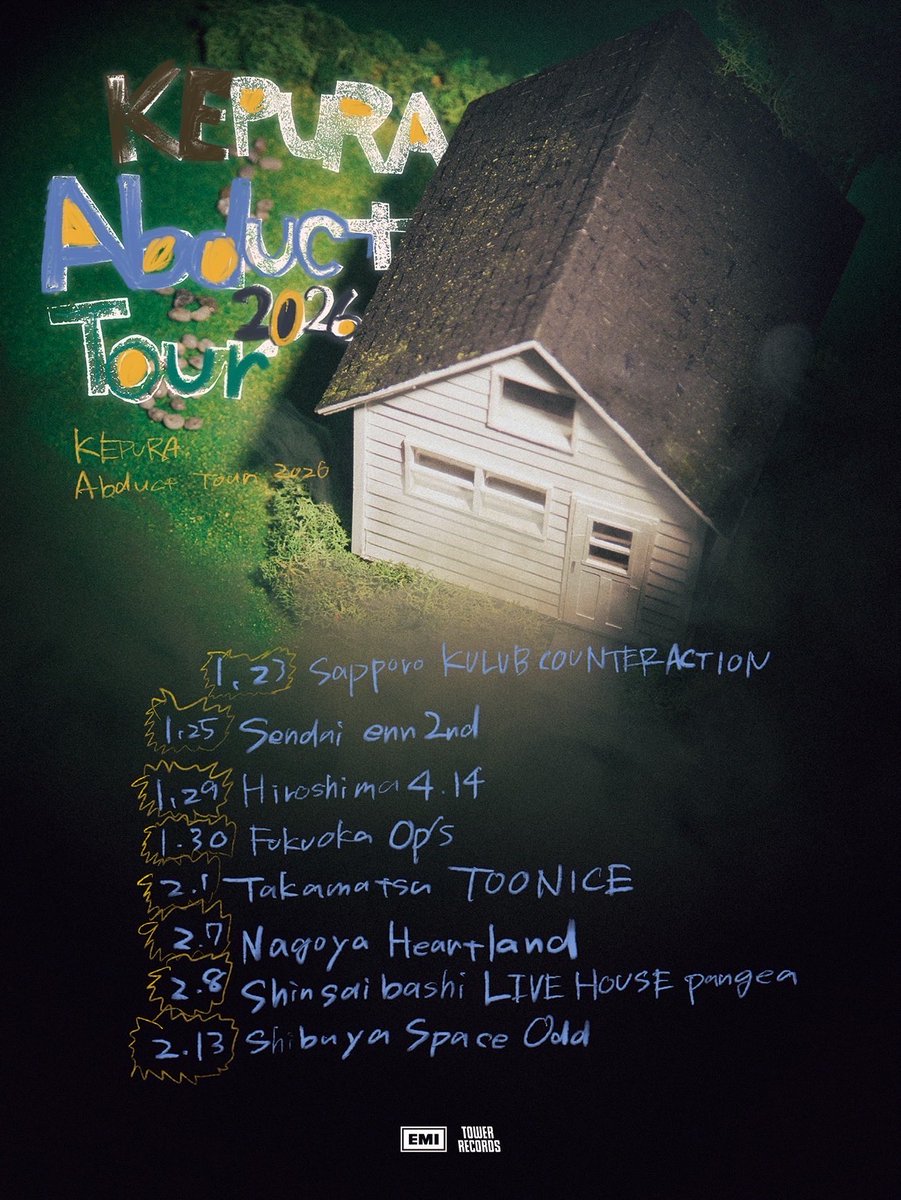 KEPURA
Abduct
2026
Tour
KEPURA
Abduct Tour 2026
1.23 Sapporo KULUB COUNTER ACTION
1.25 Sendai enn 2nd
1.29 Hiroshima 4.14
1.30 Fukuoka Op's
2.1 Takamatsu TOONICE
2.7 Nagoya Heartland
2.8 Shinsaibashi LIVE HOUSE pangea
2.13 Shibuya Space Odd
EMI TOWER
RECORDS